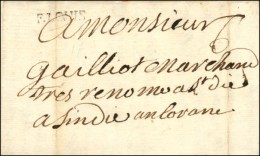 EPINAL
amonsieur
gailliot marchand
tres renome a st die
a sindie anlorane